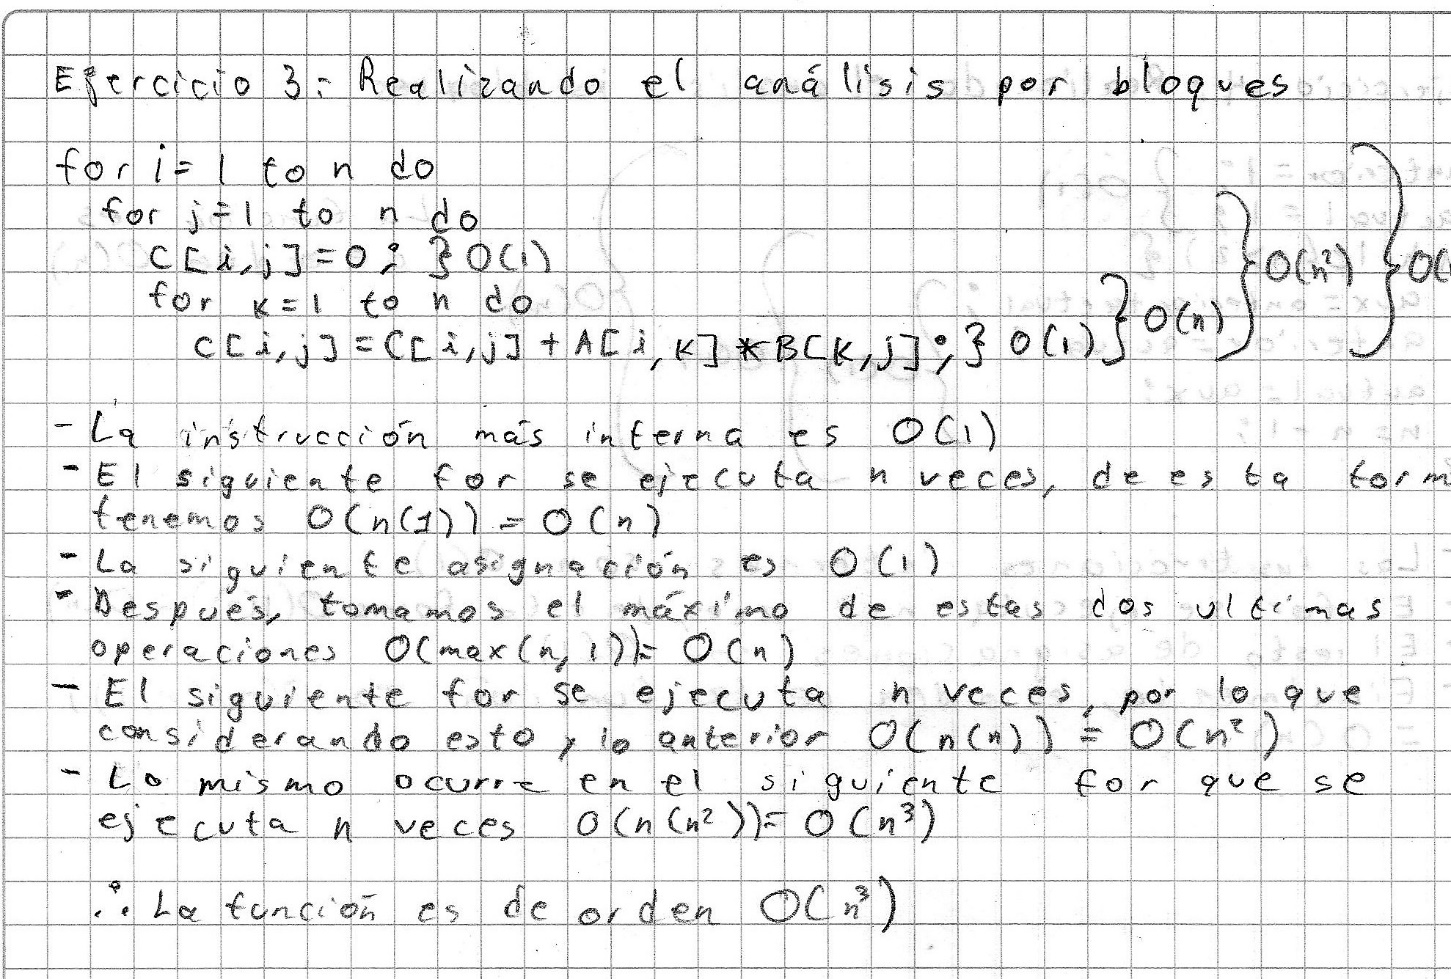 Ejercicio 3: Realizando el análisis por bloques
for i=1 to n do
for j=1 to n do
C[i,j]=0; } O(1)
for k=1 to n do
C[i,j]=C[i,j]+A[i,k]*B[k,j]; } O(1) } O(n) } O(n²) } O(
- La instrucción más interna es O(1)
- El siguiente for se ejecuta n veces, de esta form
tenemos O(n(1)) = O(n)
- La siguiente asignación es O(1)
- Después, tomamos el máximo de estas dos ultimas
operaciones O(max(n,1))= O(n)
- El siguiente for se ejecuta n veces, por lo que
considerando esto y lo anterior O(n(n)) = O(n²)
- Lo mismo ocurre en el siguiente for que se
ejecuta n veces O(n(n²))= O(n³)
∴ La función es de orden O(n³)